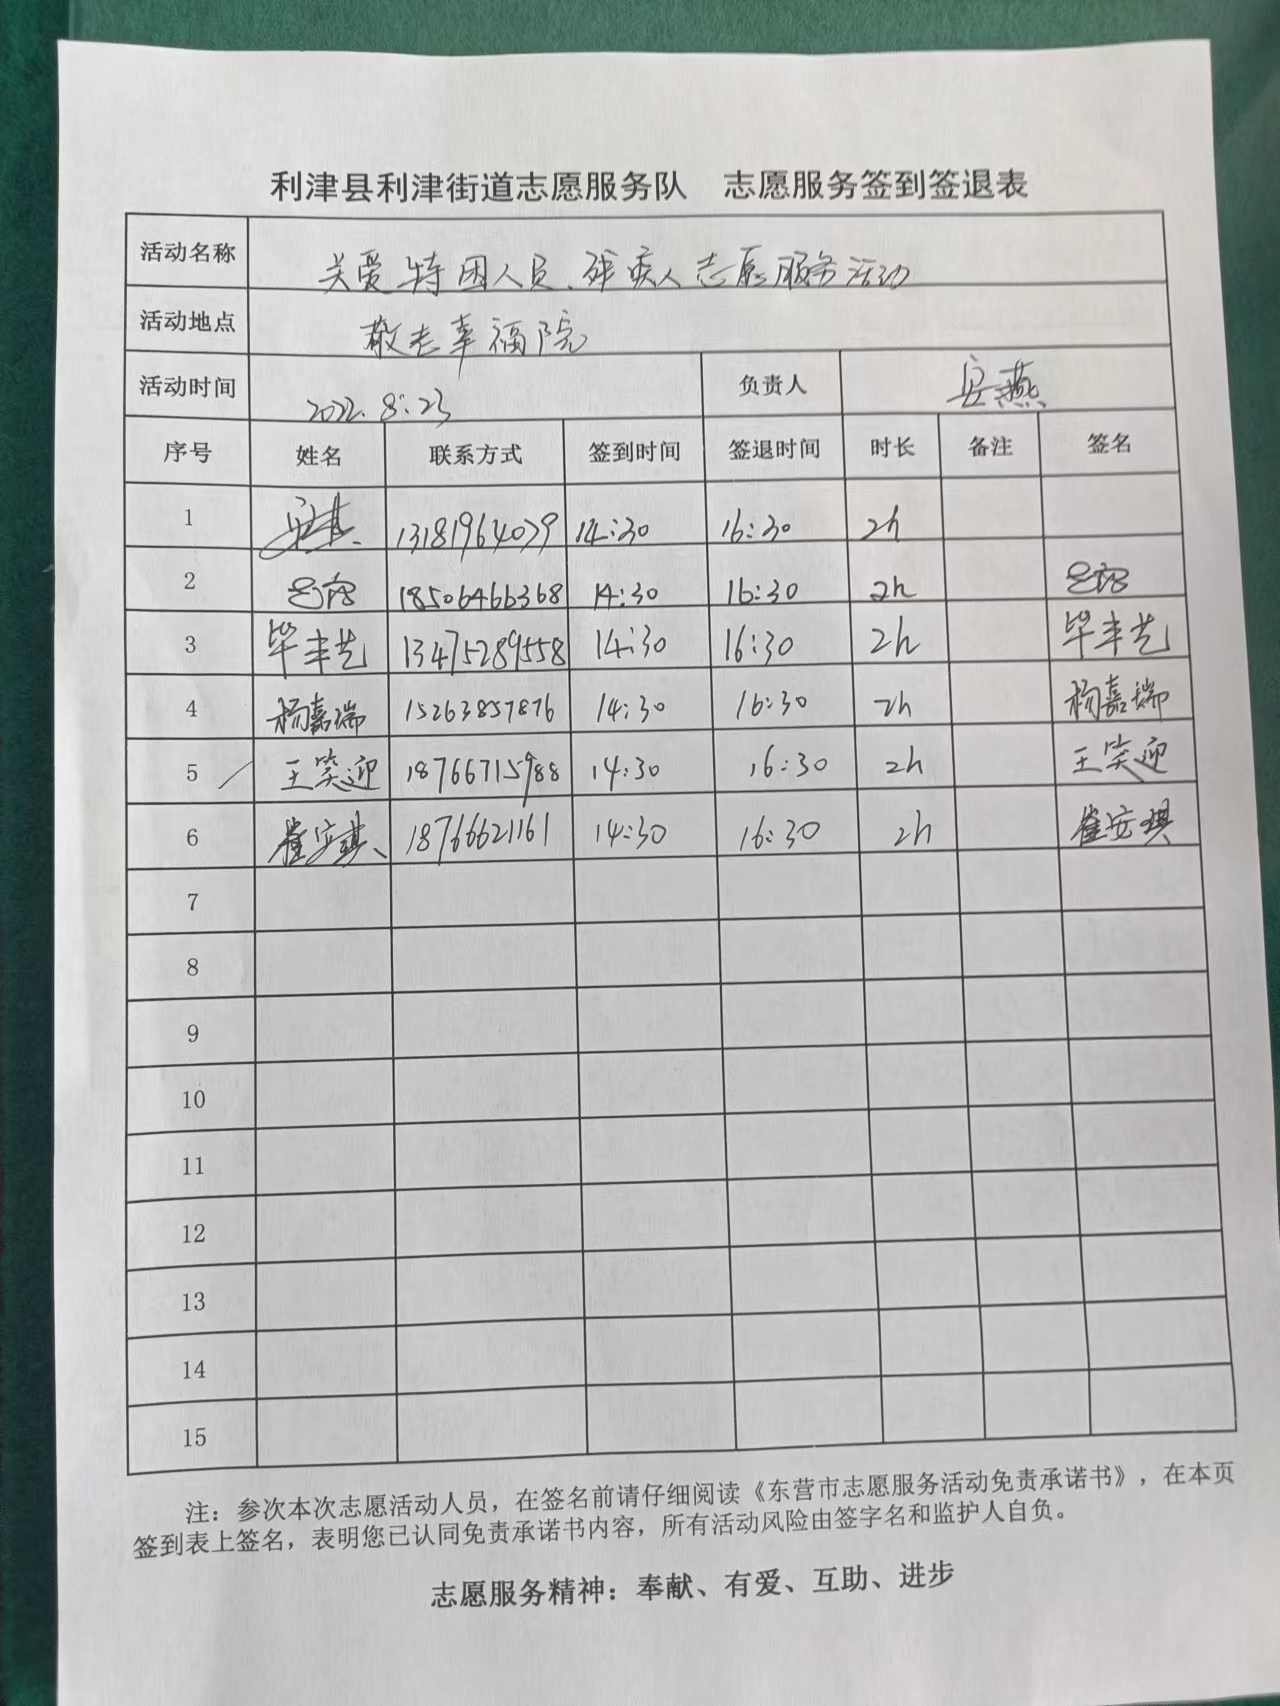 利津县利津街道志愿服务队 志愿服务签到签退表
活动名称 关爱特困人员、残疾人志愿服务活动
活动地点 敬老幸福院
活动时间 2022.8.23 负责人 燕
序号 姓名 联系方式 签到时间 签退时间 时长 备注 签名
1 13181964079 14:30 16:30 2h
2 18506466368 14:30 16:30 2h
3 毕丰艺 13475289558 14:30 16:30 2h 毕丰艺
4 杨嘉瑞 15263857876 14:30 16:30 2h 杨嘉瑞
5 王笑迎 18766715988 14:30 16:30 2h 王笑迎
6 崔安琪 18766621161 14:30 16:30 2h 崔安琪
7
8
9
10
11
12
13
14
15
注：参次本次志愿活动人员，在签名前请仔细阅读《东营市志愿服务活动免责承诺书》，在本页
签到表上签名，表明您已认同免责承诺书内容，所有活动风险由签字名和监护人自负。
志愿服务精神：奉献、有爱、互助、进步